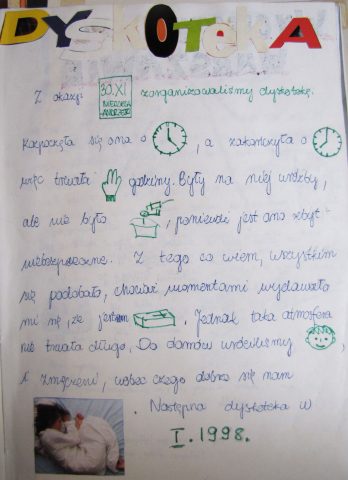 DYSKOTEKA
Z okazji 30.XI IMIENINA ANDRZEJA zorganizowaliśmy dyskotekę.
Rozpoczęła się ona o , a zakończyła o
więc trwała godziny. Były na niej wróżby,
ale nie było , ponieważ jest ono zbyt
niebezpieczne. Z tego co wiem, wszystkim
się podobało, chociaż momentami wydawało
mi się, że jestem . Jednak taka atmosfera
nie trwała długo. Do domów wróciliśmy
i zmęczeni, wobec czego dobrze się nam
. Następna dyskoteka w
I.1998.